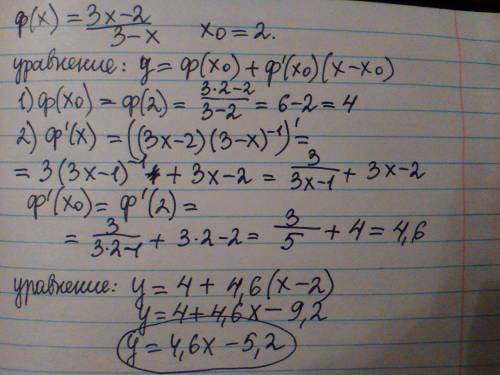 ф(x) = (3x-2)/(3-x)   x₀ = 2.
уравнение: y = ф(x₀) + ф'(x₀)(x-x₀)
1) ф(x₀) = ф(2) = (3·2-2)/(3-2) = 6-2 = 4
2) ф'(x) = ((3x-2)(3-x)⁻¹)' =
= 3(3x-1)⁻¹ + 3x-2 = 3/(3x-1) + 3x-2
ф'(x₀) = ф'(2) =
= 3/(3·2-1) + 3·2-2 = 3/5 + 4 = 4,6
уравнение: y = 4 + 4,6(x-2)
y = 4+4,6x - 9,2
y = 4,6x - 5,2